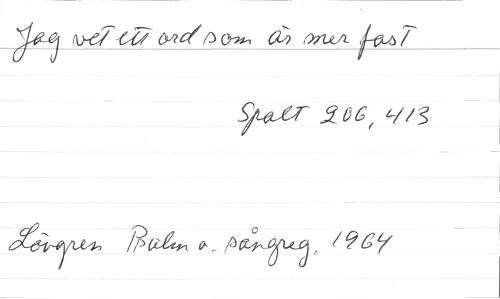 Jag vet ett ord som är mer fast
Spalt 206, 413
Lövgren Psalm o. sångreg. 1964